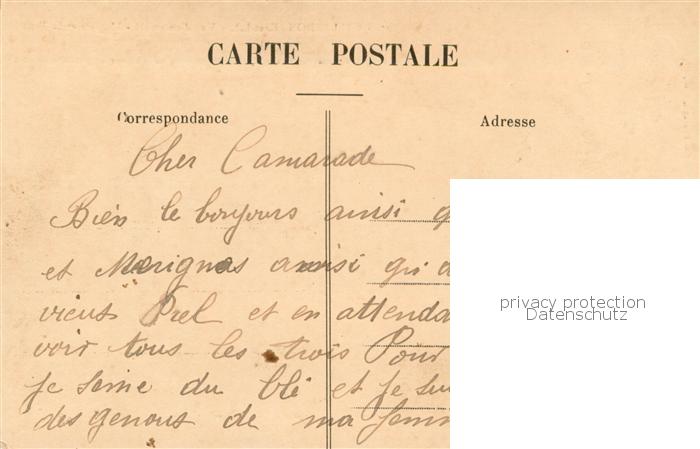 CARTE POSTALE
Correspondance
Adresse
Cher Camarade
Bien le bonjours ainsi q
et Merignas ainsi qu'a
vieux Prel et en attenda
voir tous les trois Pour
je seme du blé et je su
des genous de ma femm
privacy protection
Datenschutz